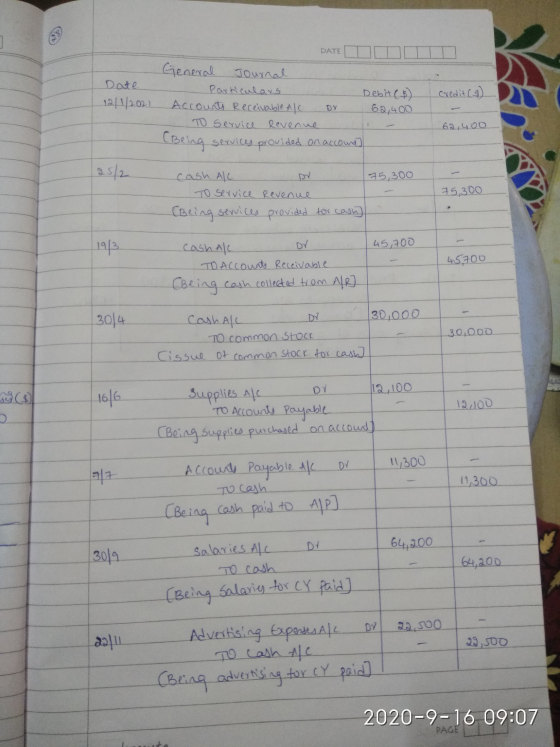 28
DATE
General Journal
Date Particulars Debit($) Credit($)
12/1/2021 Accounts Receivable A/c Dr 62,400 -
TO Service Revenue - 62,400
[Being services provided on account]
25/2 Cash A/c Dr 75,300 -
TO Service Revenue - 75,300
[Being services provided for cash]
19/3 Cash A/c Dr 45,700 -
TO Accounts Receivable - 45700
[Being cash collected from A/R]
30/4 Cash A/c Dr 30,000 -
TO common stock - 30,000
[issue of common stock for cash]
16/6 Supplies A/c Dr 12,100 -
TO Accounts Payable - 12,100
[Being supplies purchased on account]
7/7 Accounts Payable A/c Dr 11,300 -
TO Cash - 11,300
[Being cash paid to A/P]
30/9 Salaries A/c Dr 64,200 -
TO cash - 64,200
[Being Salaries for CY Paid]
22/11 Advertising Expenses A/c Dr 22,500 -
TO Cash A/c - 22,500
[Being advertising for CY paid]
PAGE
2020-9-16 09:07